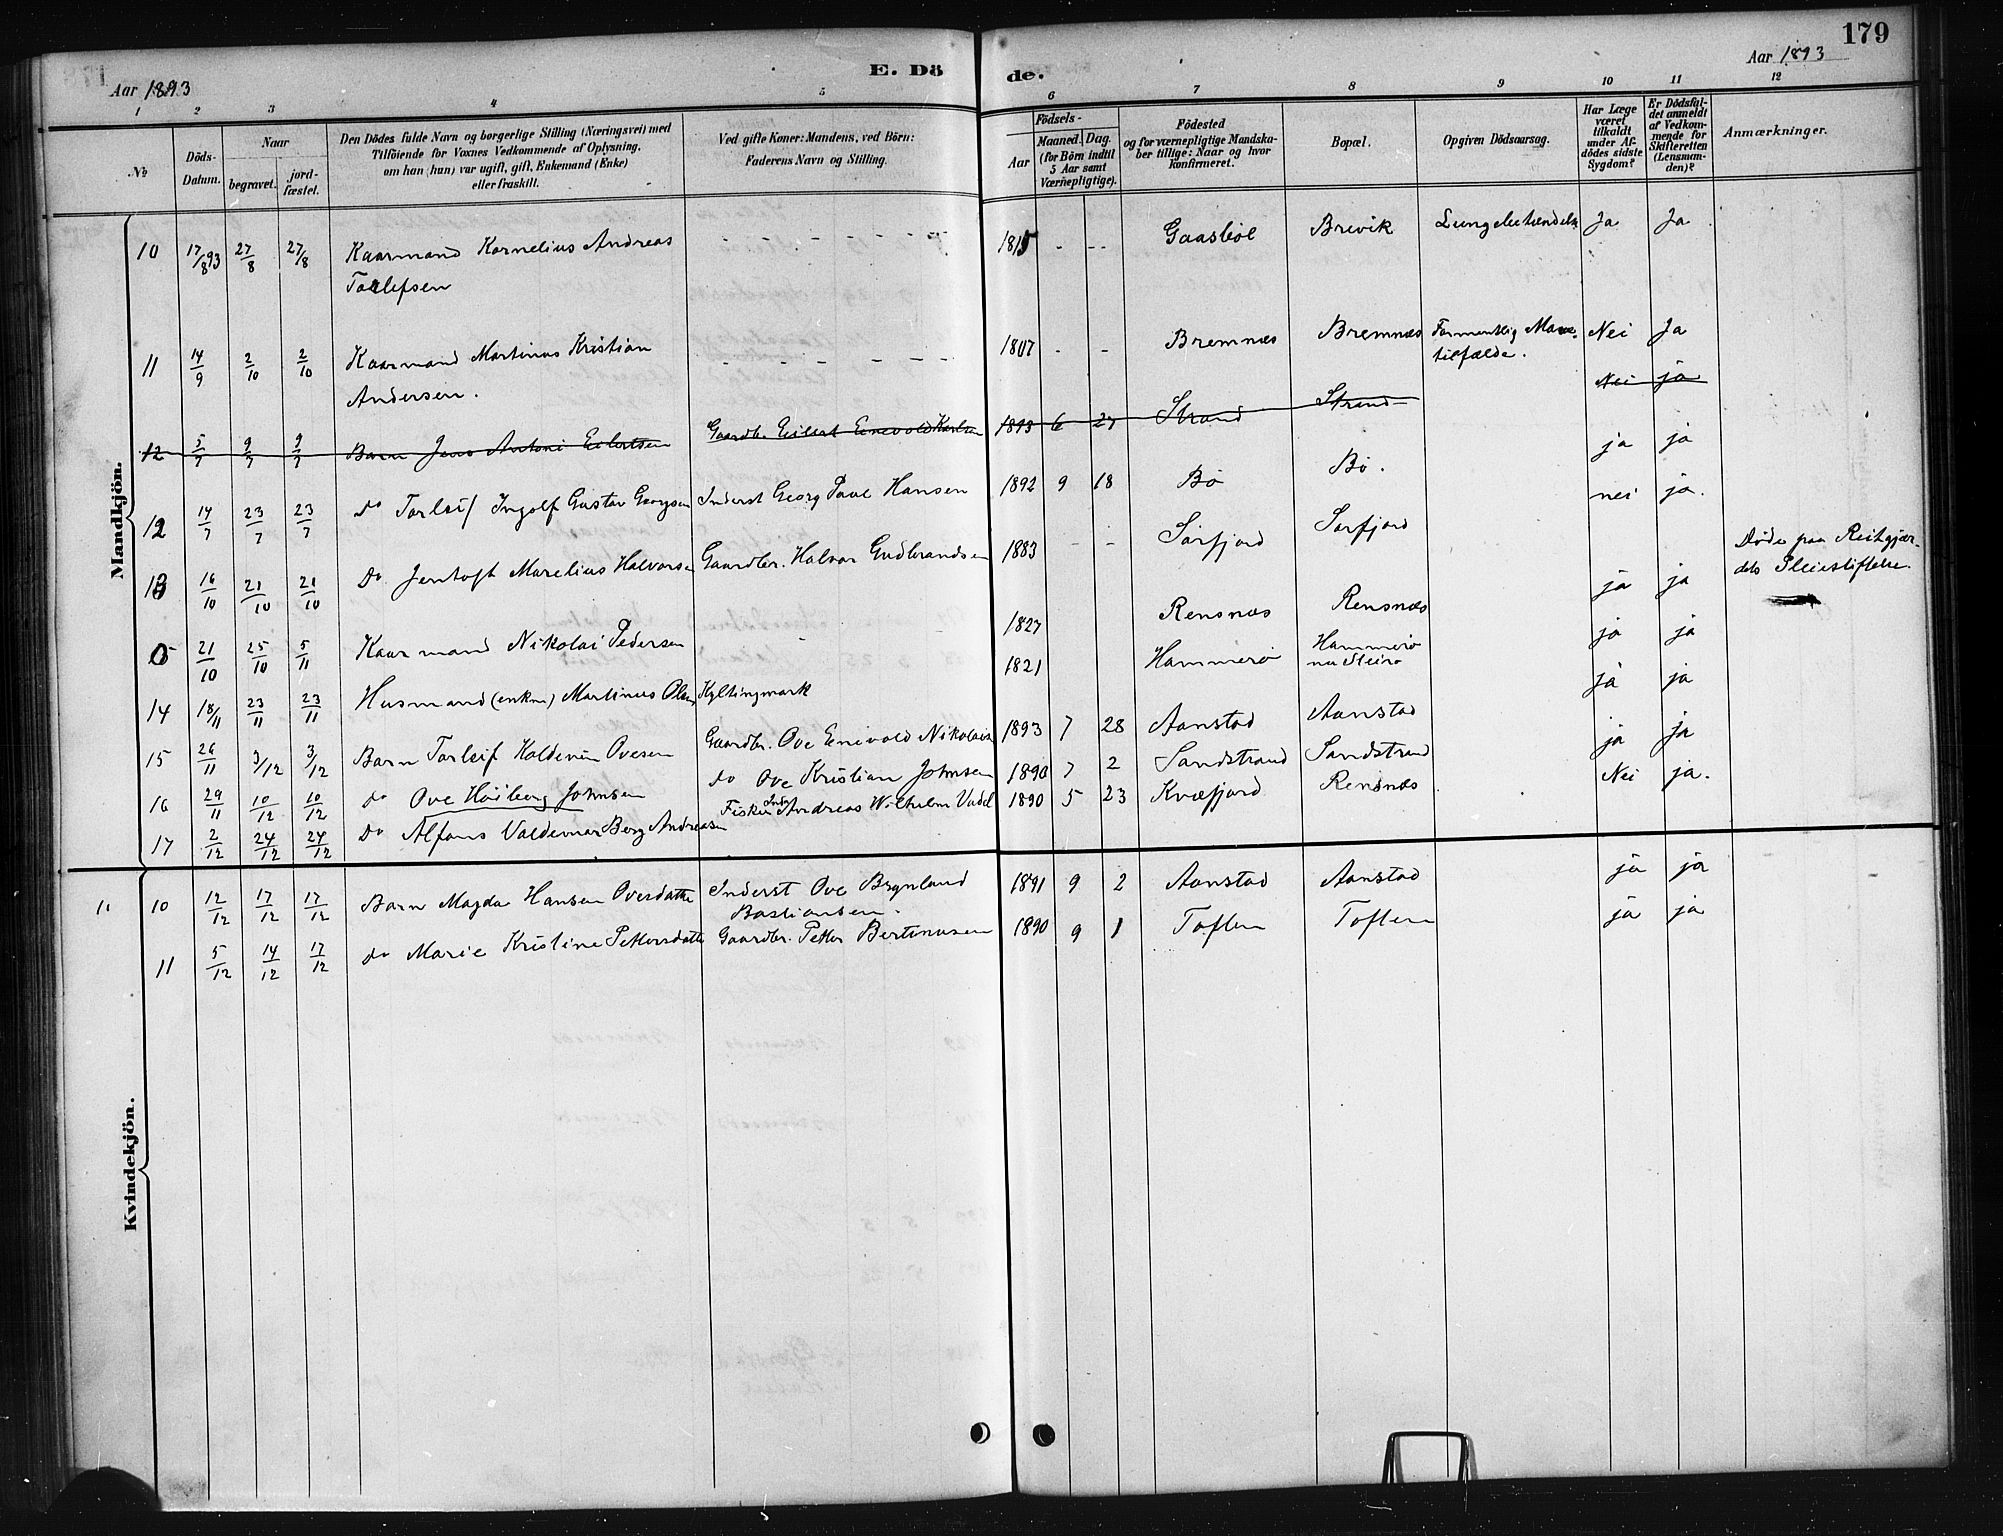 179
Aar 1893
E. Dö
de.
Aar 1893
1 2 3 4 5 6 7 8 9 10 11 12
№
Döds-
Datum.
Naar
begravet.
jord-
fæstet.
Den Dödes fulde Navn og borgerlige Stilling (Næringsvei) med
Tilföiende for Voxnes Vedkommende af Oplysning,
om han (hun) var ugift, gift, Enkemand (Enke)
eller fraskilt.
Ved gifte Koner: Mandens, ved Börn:
Faderens Navn og Stilling.
Födsels-
Aar
Maaned. Dag.
(for Börn indtil
5 Aar samt
Værnepligtige).
Födested
og for værnepligtige Mandska-
ber tillige: Naar og hvor
konfirmeret.
Bopæl.
Opgiven Dödsaarsag.
Har Læge
været
tilkaldt
under Af-
dödes sidste
Sygdom?
Er Dödsfal-
det anmeldt
af Vedkom-
mende for
Skifteretten
(Lensman-
den)?
Anmærkninger.
Mandkjön.
10 17/8 93 27/8 27/8 Kaarmand Kornelius Andreas - - - - - - - 1815 - - - Gaasbøl Brevik Lungebetændelse Ja Ja
Tollefsen
11 14/9 2/10 2/10 Kaarmand Martinus Kristian - - - - - - - 1807 - - Bremnæs Bremnæs Formentlig Mave- Nei Ja
Andersen. tilfælde.
12 5/7 9/7 9/7 Barn Jens Antoni Eilertsen Gaardbr. Eilert Enevold Karlsen 1893 6 27 Strand Strand Nei ja
12 14/7 23/7 23/7 do Torleif Ingolf Gustav Georgsen Inderst Georg Paul Hansen 1892 9 18 Bø Bø. ja ja
13 16/10 21/10 21/10 Do Jentoft Marelius Halvorsen Gaardbr. Halvor Gudbrandsen 1883 - - Sørfjord Sørfjord nei ja.
Døde paa Reitgjær-
dets Pleiestiftelse.
21/10 25/10 5/11 Kaarmand Nikolai Pedersen - 1827 Rensnæs Rensnæs ja ja
14 18/11 23/11 23/11 Husmand (enkm) Martinus Olsen Hyltingmark 1821 Hammerø Hammerø ja ja
15 26/11 3/12 3/12 Barn Torleif Haldevin Ovesen Gaardbr. Ove Enevold Nikolais 1893 7 28 Aanstad Aanstad ja ja
16 29/11 10/12 10/12 do Ove Høiberg Johnsen do Ove Kristian Johnsen 1890 7 2 Sandstrand Sandstrand ja ja
17 2/12 24/12 24/12 Do Alfons Valdemar Berg Andreasen Fisker Inds Andreas Wilhelm 1890 5 23 Kvæfjord Rensnæs Nei ja.
Kvindekjön.
11 10 12/12 17/12 17/12 Barn Magda Hansen Ovesdatter Inderst Ove Brynland 1891 9 2 Aanstad Aanstad ja ja
Bastiansen.
11 5/12 14/12 17/12 do Marie Kristine Pettersdatter Gaardbr. Petter Bertinusen 1890 9 1 Toften Toften ja ja